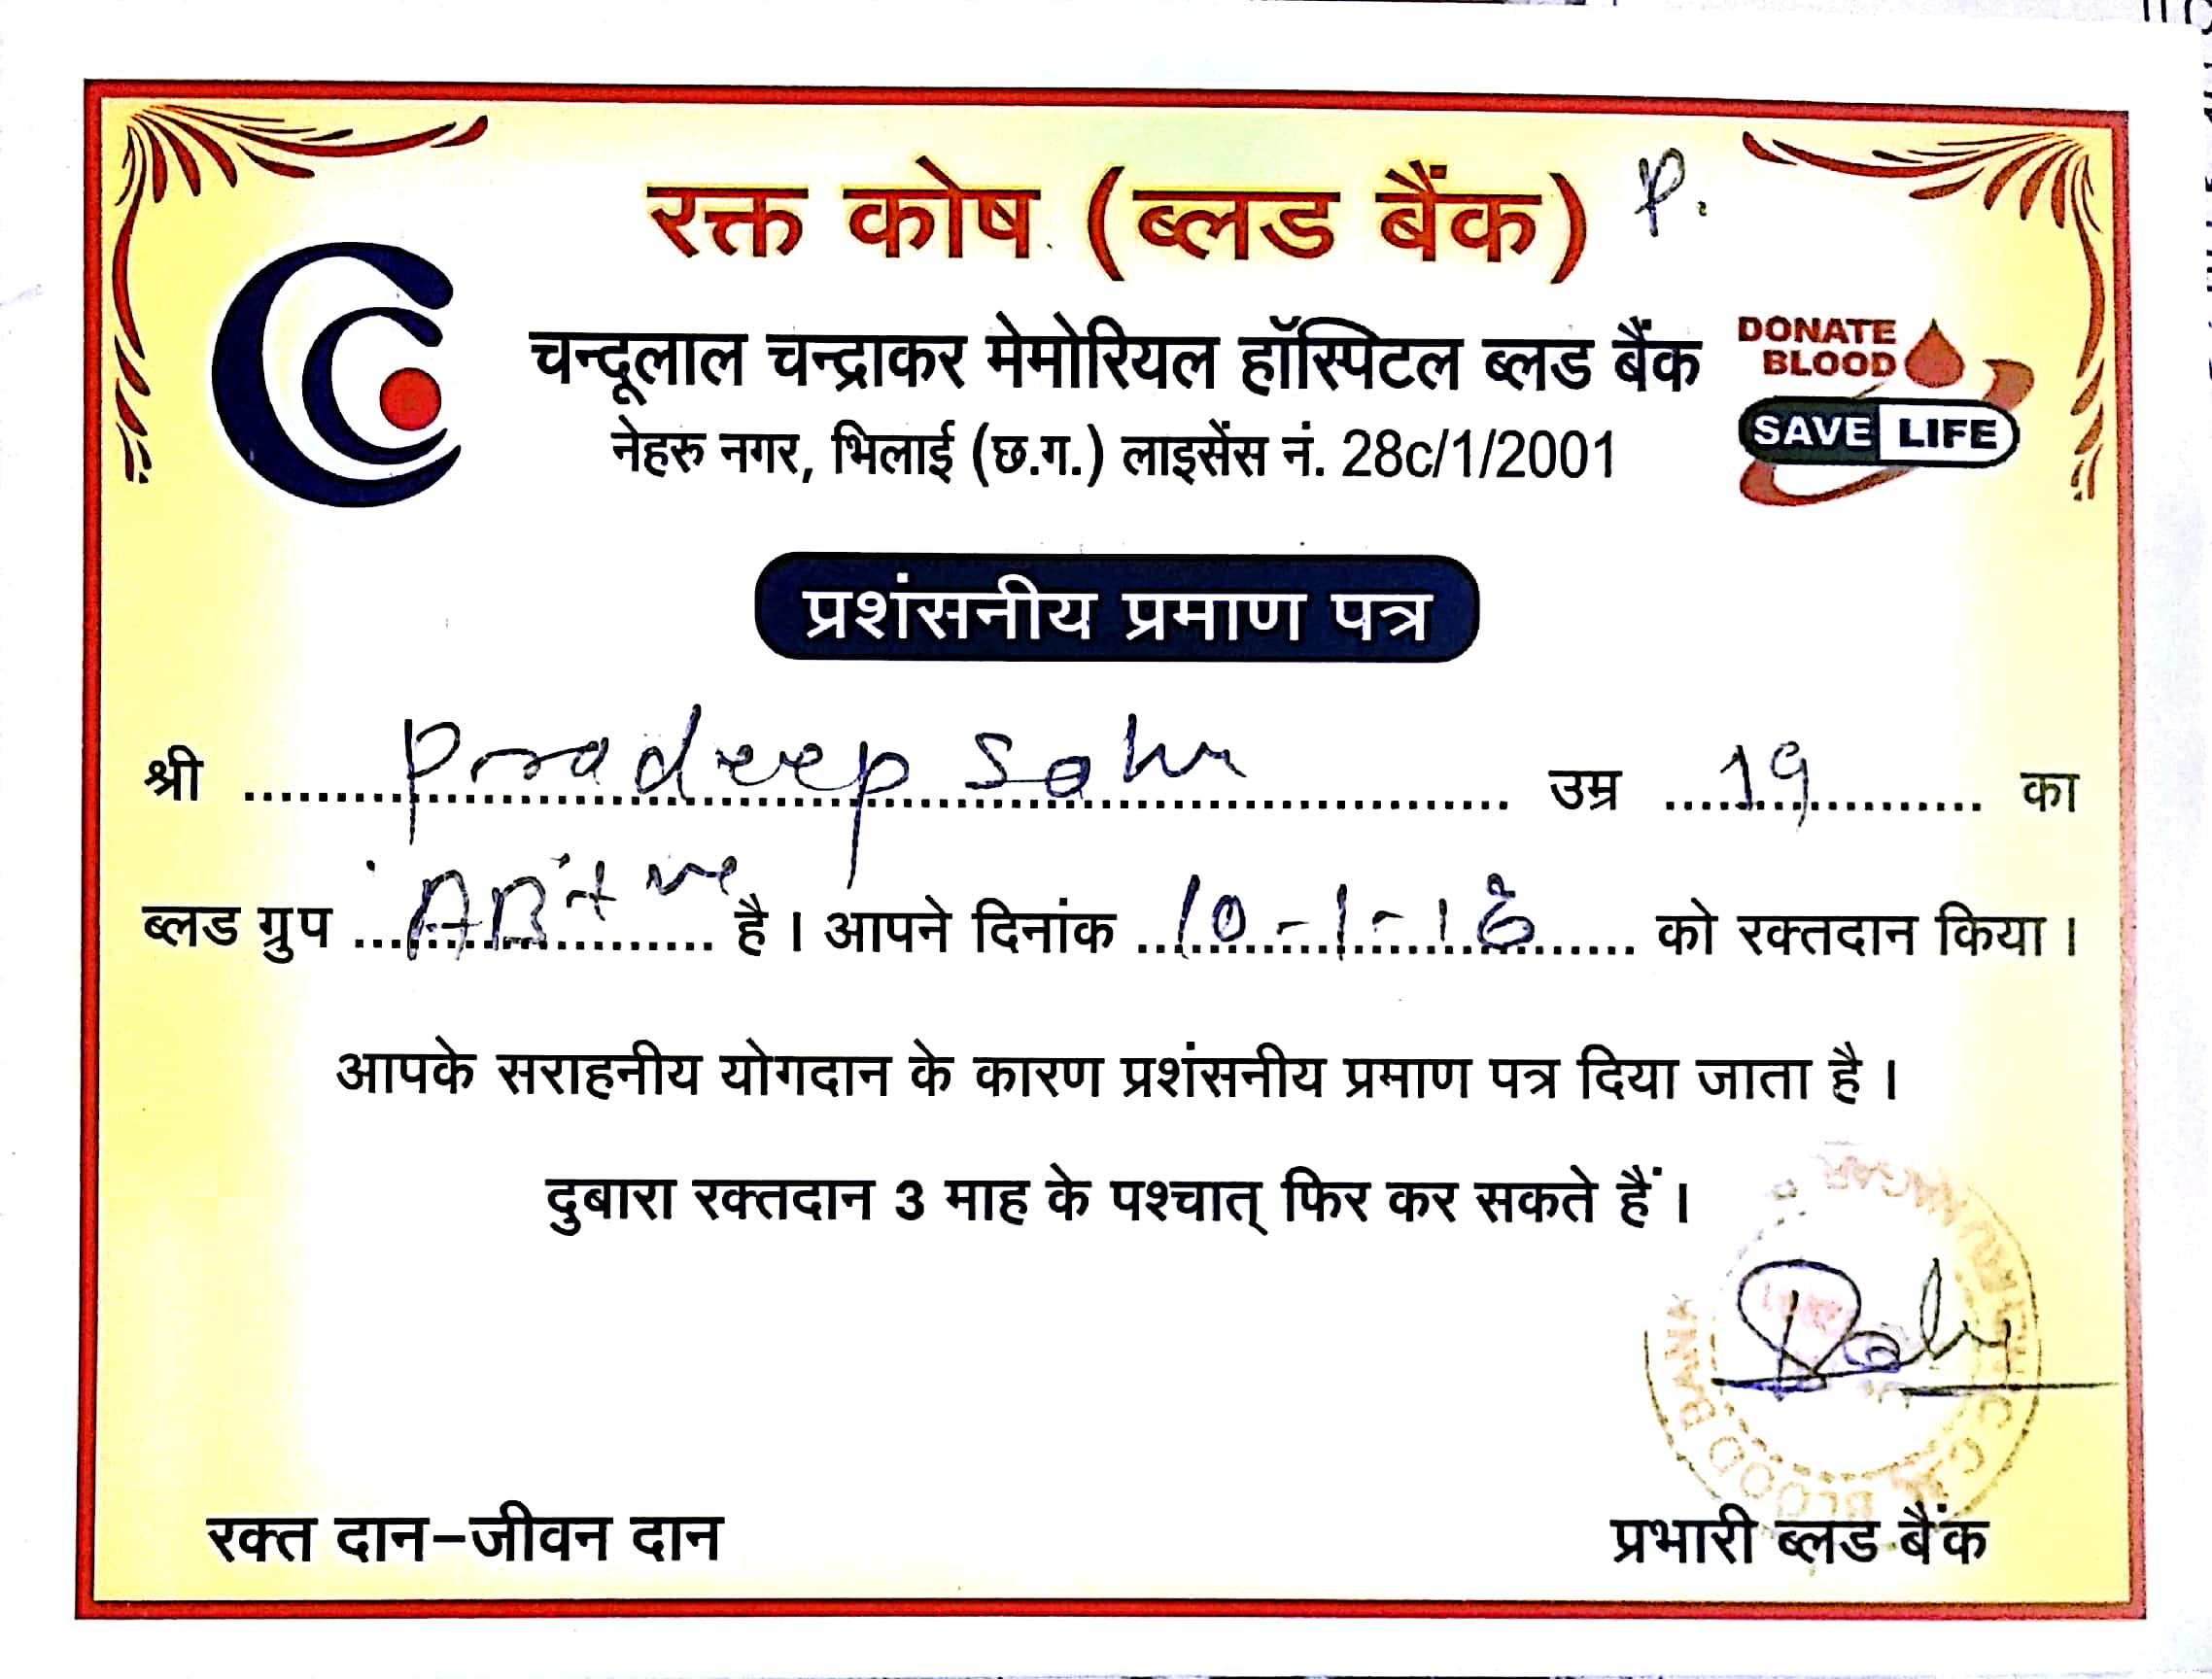 रक्त कोष (ब्लड बैंक) P.
चन्दूलाल चन्द्राकर मेमोरियल हॉस्पिटल ब्लड बैंक
नेहरु नगर, भिलाई (छ.ग.) लाइसेंस नं. 28c/1/2001
DONATE
BLOOD
SAVE LIFE
प्रशंसनीय प्रमाण पत्र
श्री Pradeep Sahu उम्र 19 का
ब्लड ग्रुप AB+ve है। आपने दिनांक 10-1-18 को रक्तदान किया।
आपके सराहनीय योगदान के कारण प्रशंसनीय प्रमाण पत्र दिया जाता है।
दुबारा रक्तदान 3 माह के पश्चात् फिर कर सकते हैं।
BLOOD BANK
रक्त दान-जीवन दान
प्रभारी ब्लड बैंक